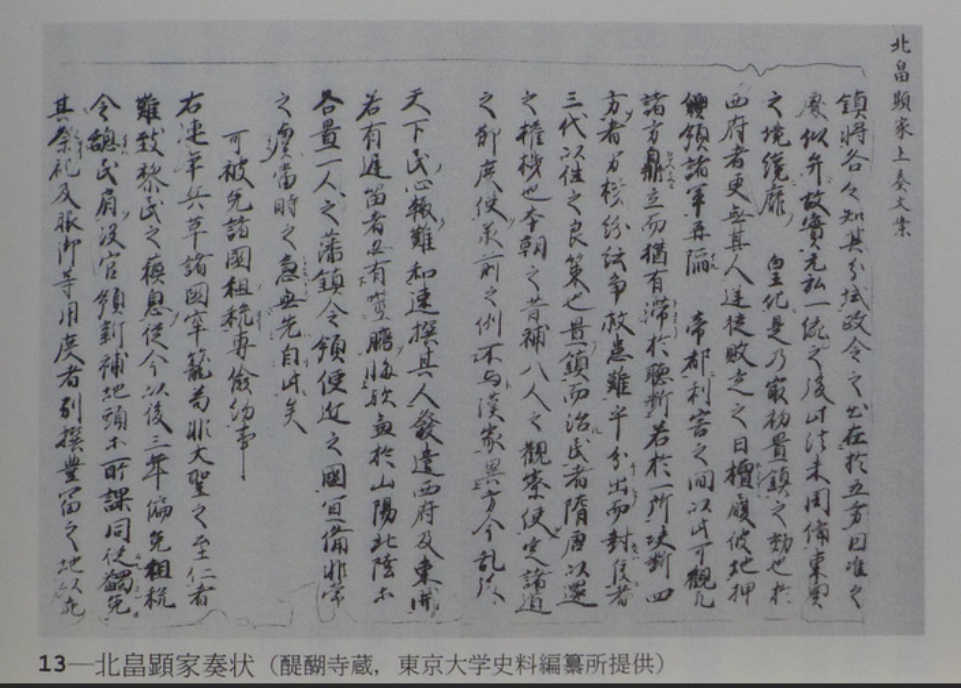 北畠顕家上奏文案
鎮将各々知其分域政令之出在於五方因准之
處似弁故實元弘一統之後此法未周備東奥
之境纔靡 皇化是乃最初置鎮之効也於
西府者更無其人逆徒敗走之日擅履彼地押
領諸軍再陥 帝都利害之間以此可観凡
諸方鼎立而猶有滞於聴断若於一所決断四
方者万機紛紜争救患難乎分出而封侯者
三代以往之良策也置鎮而治民者隋唐以還
之権機也本朝之昔補八人之観察使定諸道
之節度使承前之例不与漢家異方今乱後
天下民心輙難和速撰其人發遣西府及東関
若有遅留者必有噬臍悔歟兼於山陽北陸等
各置一人之藩鎮令領便近之國宜備非常
之虞當時之急無先自此矣
可被免諸國租税専倹約事
右連年兵革諸國窂籠苟非大聖之至仁者
難致黎民之蘇息従今以後三年偏免租税
令憩民肩没官領新補地頭等所課同従蠲免
其祭祀及服御等用度者別撰豊富之地以充
13—北畠顕家奏状（醍醐寺蔵，東京大学史料編纂所提供）